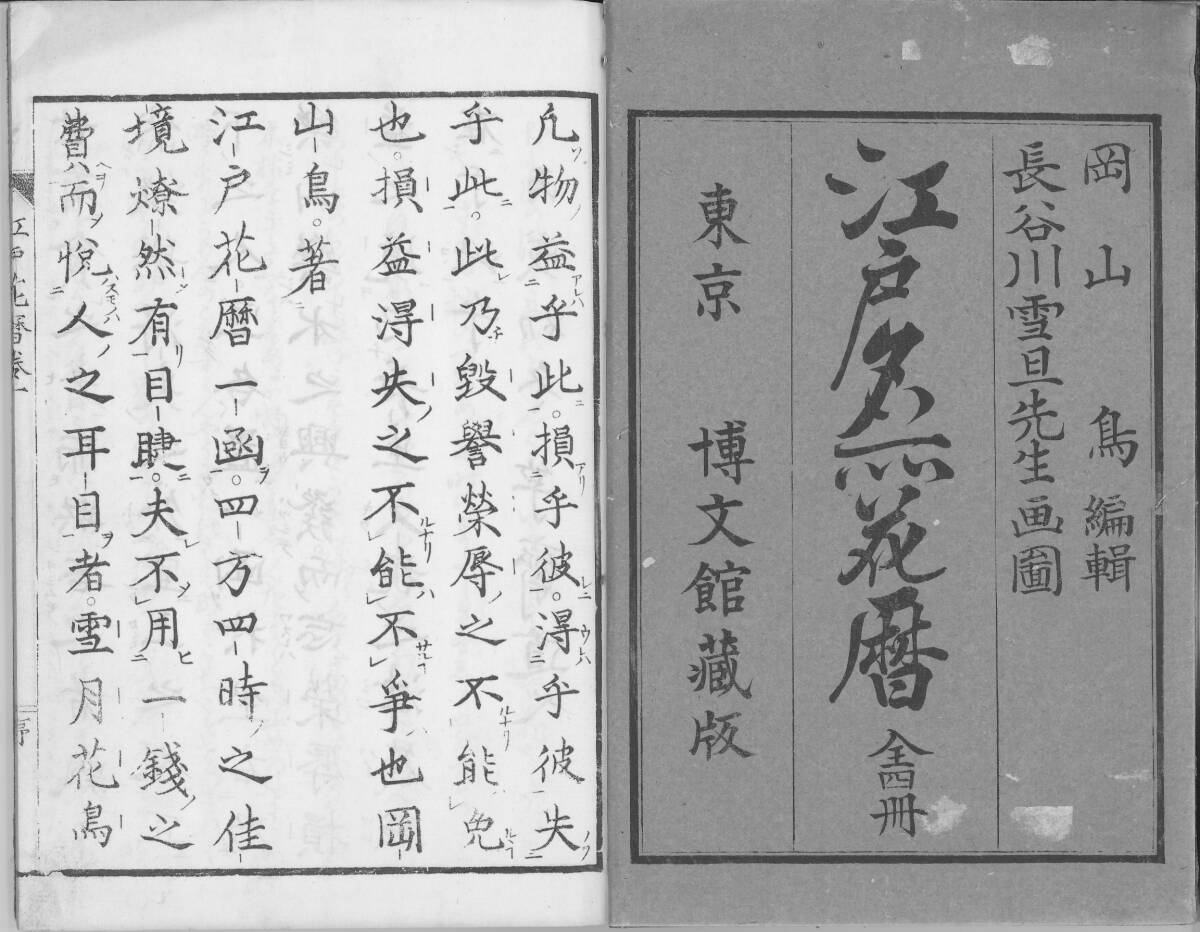 岡山鳥編輯
長谷川雪旦先生画圖
江戸名所花暦 全四冊
東京 博文館藏版
凢物益乎此。損乎彼。得乎彼失
乎此。此乃毀譽榮辱之不能免
也。損益得失之不能不爭也岡
山鳥。著
江戸花暦一函。四方四時之佳
境燎然有目睫。夫不用一錢之
費而悅人之耳目者。雪月花鳥
江戸花暦卷一
序